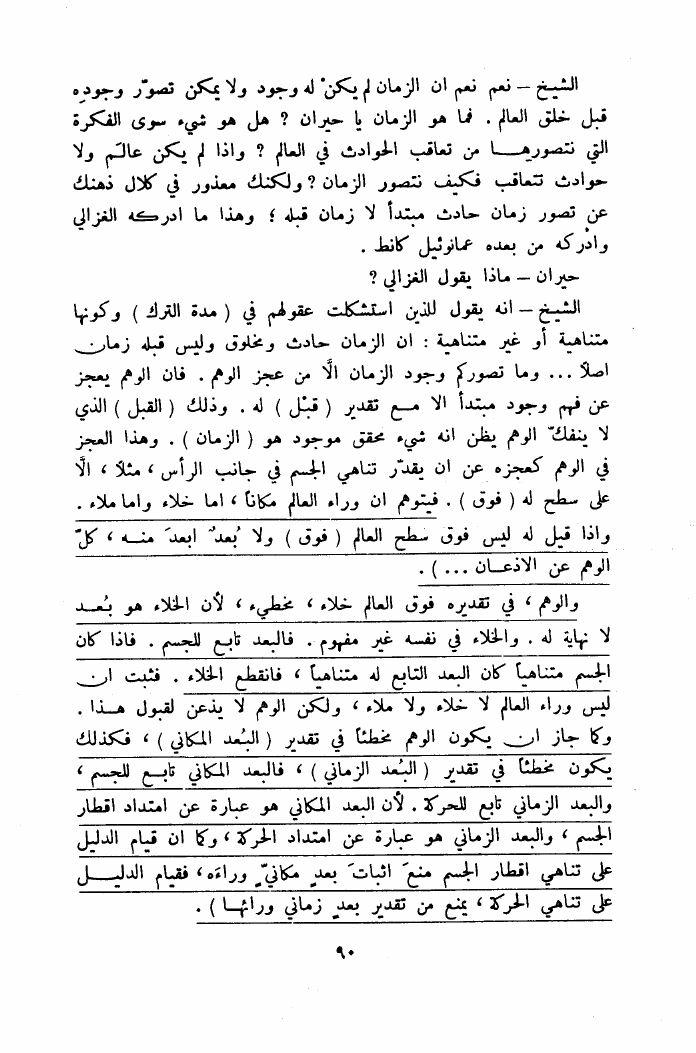 الشيخ – نعم نعم ان الزمان لم يكنْ له وجود ولا يمكن تصوّر وجوده
قبل خلق العالم . فما هو الزمان يا حيران ? هل هو شيء سوى الفكرة
التي نتصورهـا من تعاقب الحوادث في العالم ? واذا لم يكن عالَم ولا
حوادث تتعاقب فكيف نتصور الزمان ? ولكنك معذور في كلال ذهنك
عن تصور زمان حادث مبتدأ لا زمان قبله ؛ وهذا ما ادركه الغزالي
وادْركه من بعده عمانوئيل كانط .
حيران – ماذا يقول الغزالي ?
الشيخ – انه يقول للذين استشكلت عقولهم في ( مدة الترك ) وكونها
متناهية أو غير متناهية : ان الزمان حادث ومخلوق وليس قبله زمان
اصلاً ... وما تصوركم وجود الزمان الَّا من عجز الوهم . فان الوهم يعجز
عن فهم وجود مبتدأ الا مـع تقدير ( قبْل ) له . وذلك ( القبل ) الذي
لا ينفكّ الوهم يظن انه شيء محقق موجود هو ( الزمان ) . وهذا العجز
في الوهم كعجزه عن ان يقدّر تناهي الجسم في جانب الرأس ، مثلًا ، الَّا
على سطح له ( فوق ) . فيتوهم ان وراء العالم مكاناً ، اما خلاء واما ملاء .
واذا قيل له ليس فوق سطح العالم ( فوق ) ولا بُعدٌ ابعدَ منـه ، كلّ
الوهم عن الاذعـان ... ) .
والوهم ، في تقديره فوق العالم خلاء ، مخطيء ، لأن الخلاء هو بُعـد
لا نهاية له . والخلاء في نفسه غير مفهوم . فالبعد تابع للجسم . فاذا كان
الجسم متناهياً كان البعد التابع له متناهياً ، فانقطع الخلاء . فثبت ان
ليس وراء العالم لا خلاء ولا ملاء ، ولكن الوهم لا يذعن لقبول هـذا .
وكما جاز ان يكون الوهم مخطئاً في تقدير ( البُعد المكاني ) ، فكذلك
يكون مخطئاً في تقدير ( البُعد الزماني ) ، فالبعد المكاني تابـع للجسم ،
والبعد الزماني تابع للحركة . لأن البعد المكاني هو عبارة عن امتداد اقطار
الجسم ، والبعد الزماني هو عبارة عن امتداد الحركة ، وكما ان قيام الدليل
على تناهي اقطار الجسم منعَ اثباتَ بعدٍ مكانيّ وراءَه ، فقيام الدليـل
على تناهي الحركة ، يمنع من تقدير بعدٍ زماني ورائهـا ) .
٩٠